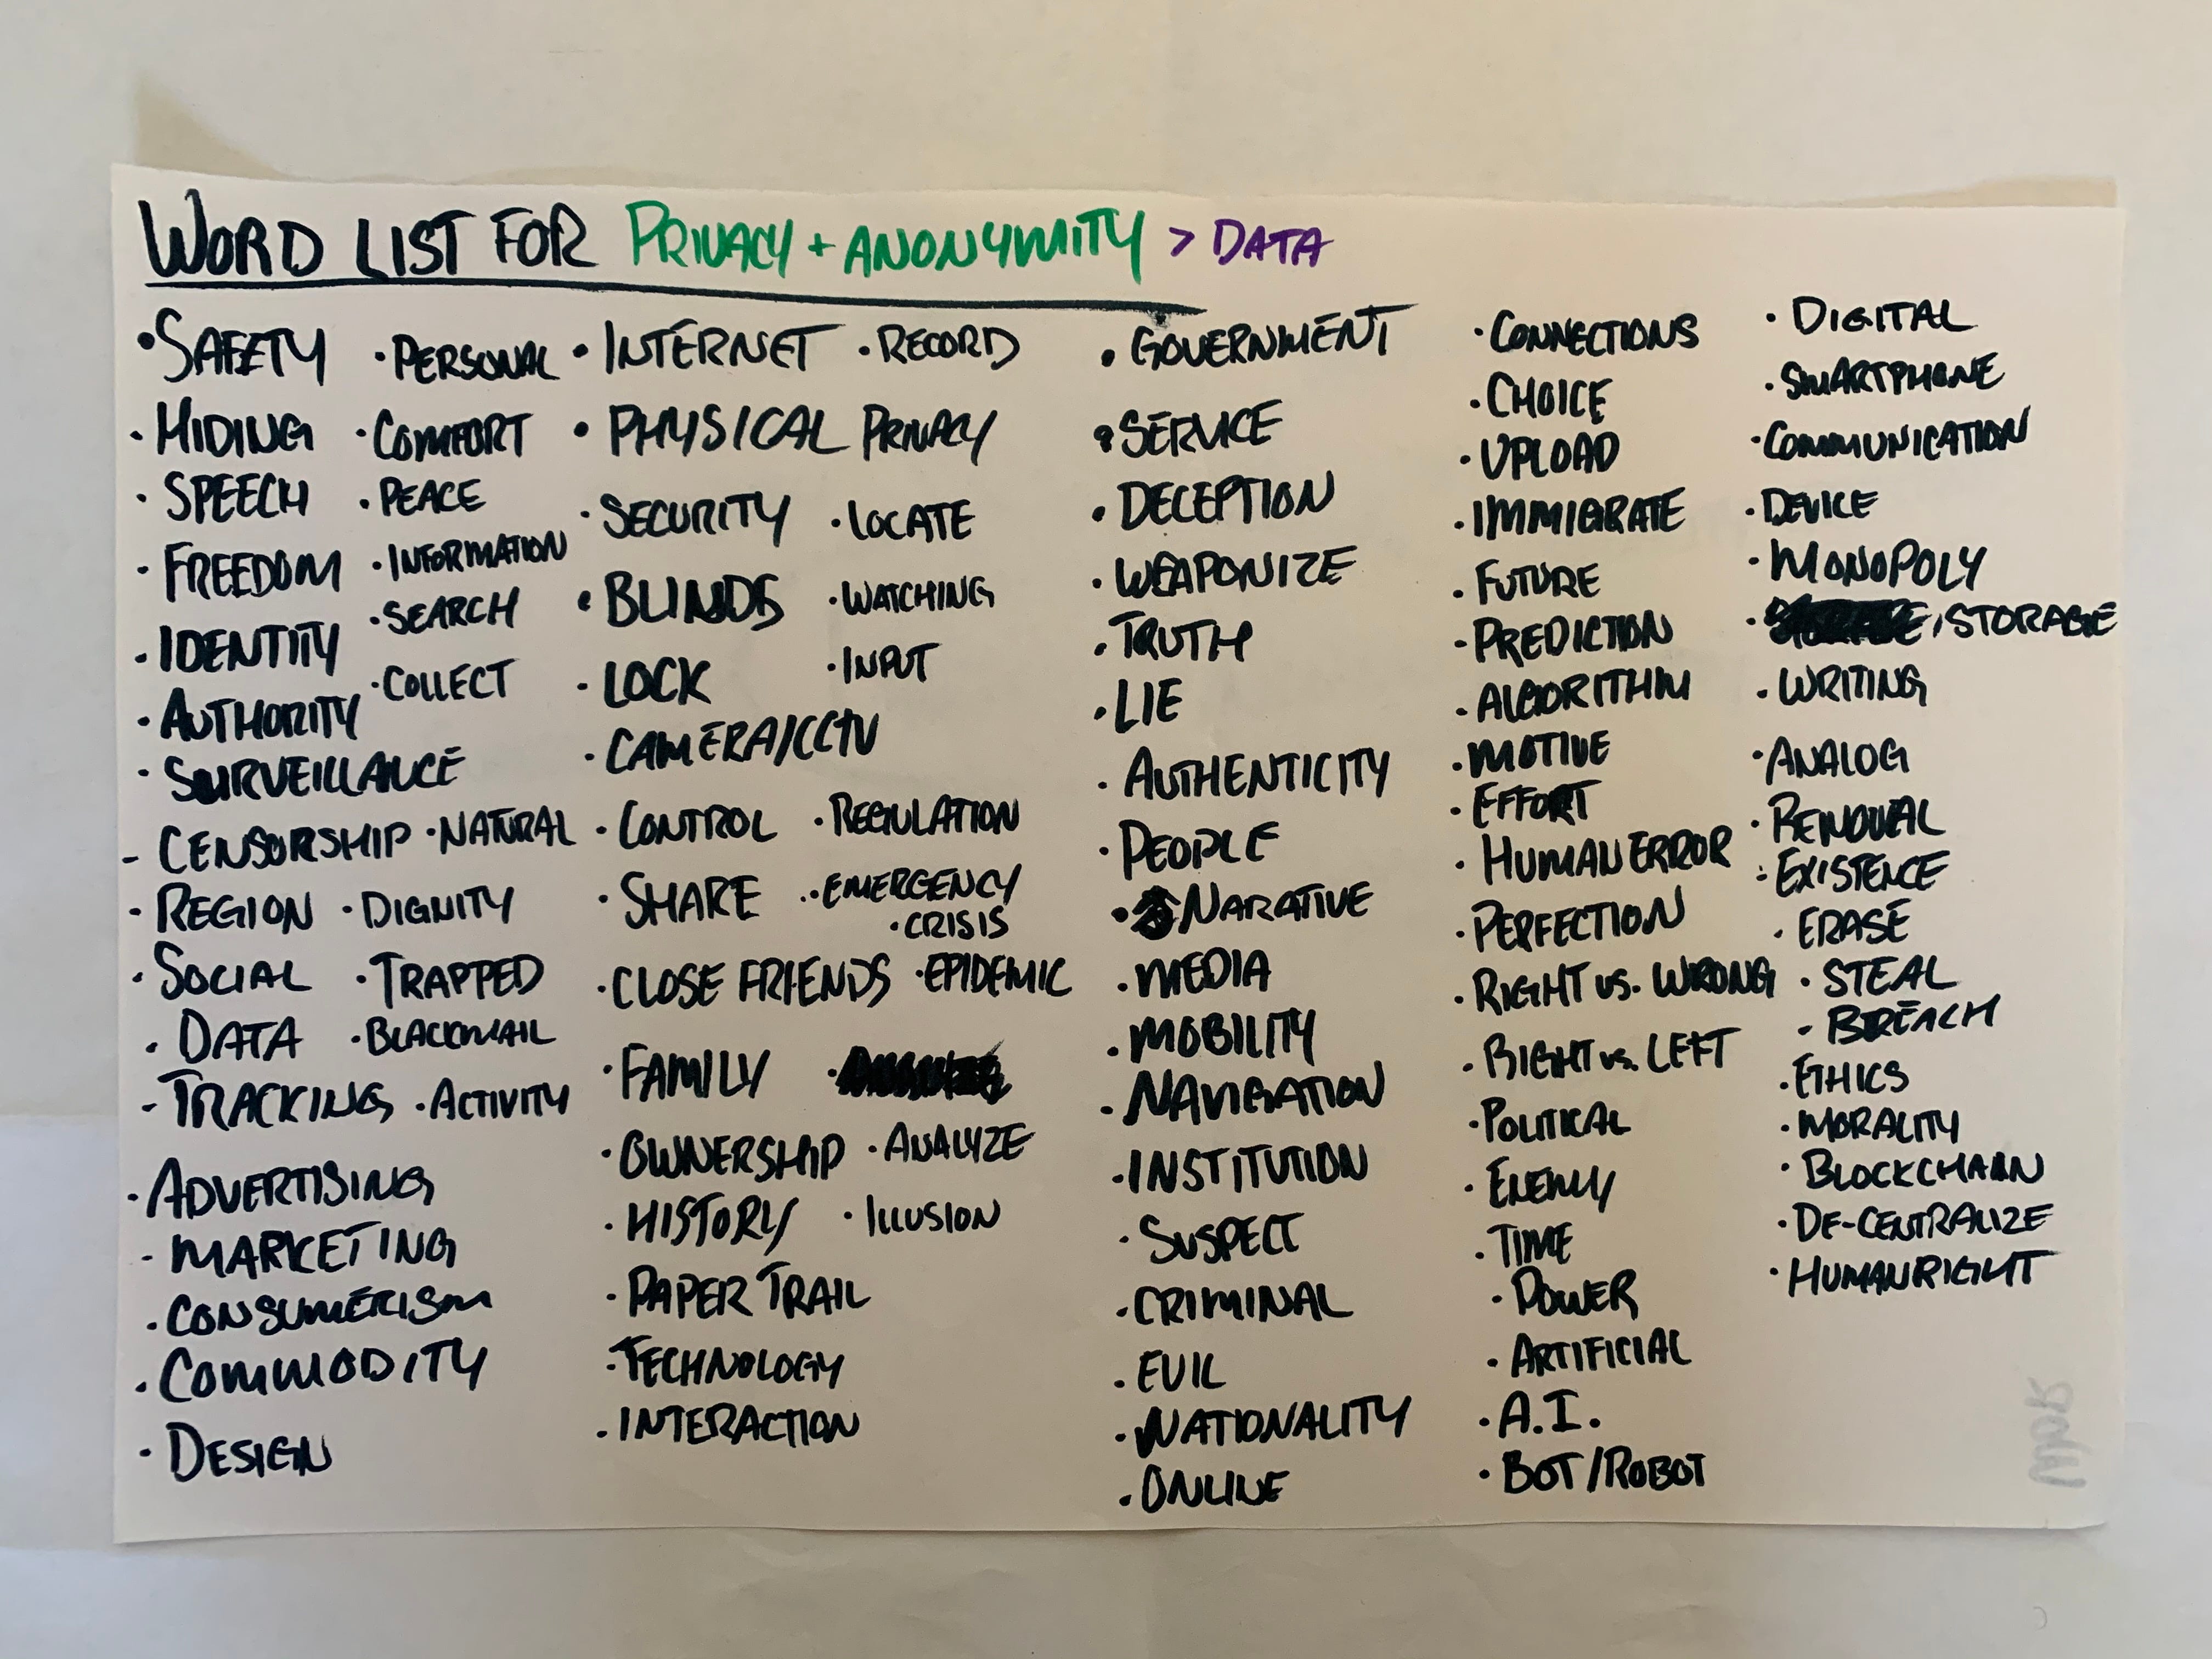 WORD LIST FOR PRIVACY + ANONYMITY > DATA
• SAFETY
• HIDING
• SPEECH
• FREEDOM
• IDENTITY
• AUTHORITY
• SURVEILLANCE
- CENSORSHIP
• REGION
• SOCIAL
• DATA
- TRACKING
• ADVERTISING
- MARKETING
• CONSUMERISM
• COMMODITY
• DESIGN
• PERSONAL
• COMFORT
• PEACE
• INFORMATION
• SEARCH
• COLLECT
• NATURAL
• DIGNITY
• TRAPPED
• BLACKMAIL
• ACTIVITY
• INTERNET
• PHYSICAL PRIVACY
• SECURITY
• BLINDS
• LOCK
• CAMERA/CCTV
• CONTROL
• SHARE
• CLOSE FRIENDS
• FAMILY
• OWNERSHIP
• HISTORY
• PAPER TRAIL
• TECHNOLOGY
• INTERACTION
• RECORD
• LOCATE
• WATCHING
• INPUT
• REGULATION
• EMERGENCY
• CRISIS
• EPIDEMIC
• ANALYZE
• ILLUSION
• GOVERNMENT
• SERVICE
• DECEPTION
• WEAPONIZE
• TRUTH
• LIE
• AUTHENTICITY
• PEOPLE
• NARATIVE
• MEDIA
• MOBILITY
• NAVIGATION
• INSTITUTION
• SUSPECT
• CRIMINAL
• EVIL
• NATIONALITY
• ONLINE
• CONNECTIONS
• CHOICE
• UPLOAD
• IMMIGRATE
• FUTURE
• PREDICTION
• ALGORITHM
• MOTIVE
• EFFORT
• HUMAN ERROR
• PERFECTION
• RIGHT VS. WRONG
• RIGHT VS. LEFT
• POLITICAL
• ENEMY
• TIME
• POWER
• ARTIFICIAL
• A.I.
• BOT/ROBOT
• DIGITAL
• SMARTPHONE
• COMMUNICATION
• DEVICE
• MONOPOLY
• STORAGE
• WRITING
• ANALOG
• REMOVAL
• EXISTENCE
• ERASE
• STEAL
• BREACH
• ETHICS
• MORALITY
• BLOCKCHAIN
• DE-CENTRALIZE
• HUMAN RIGHT